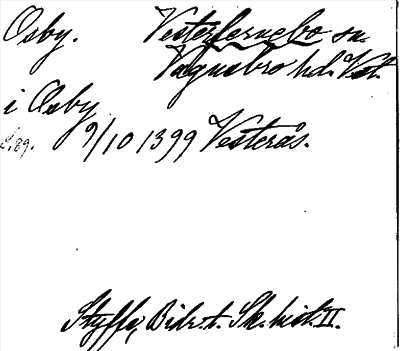 Osby. Vesterfernebo sn.
Vagnsbro hd. Vst.
i Osby
S.89. 9/10 1399 Vesterås.
Styffe, Bidr. t. Sk. hist. II.